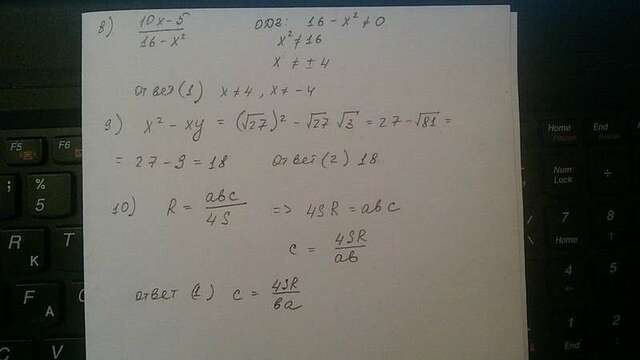 8) (10x-5)/(16-x²) ОДЗ: 16-x²≠0
x²≠16
x ≠ ± 4
ответ (1) x≠4, x≠-4
9) x²-xy = (√27)² - √27 √3 = 27-√81 =
= 27-9=18 ответ (2) 18
10) R = abc/4S => 4SR = abc
c = 4SR/ab
ответ (1) c = 4SR/ba
F5
F6
%
5
;
R
K
T
F
A
G
Home
End
Num
Lock
÷
7
8
Home
4
5
1
2
End